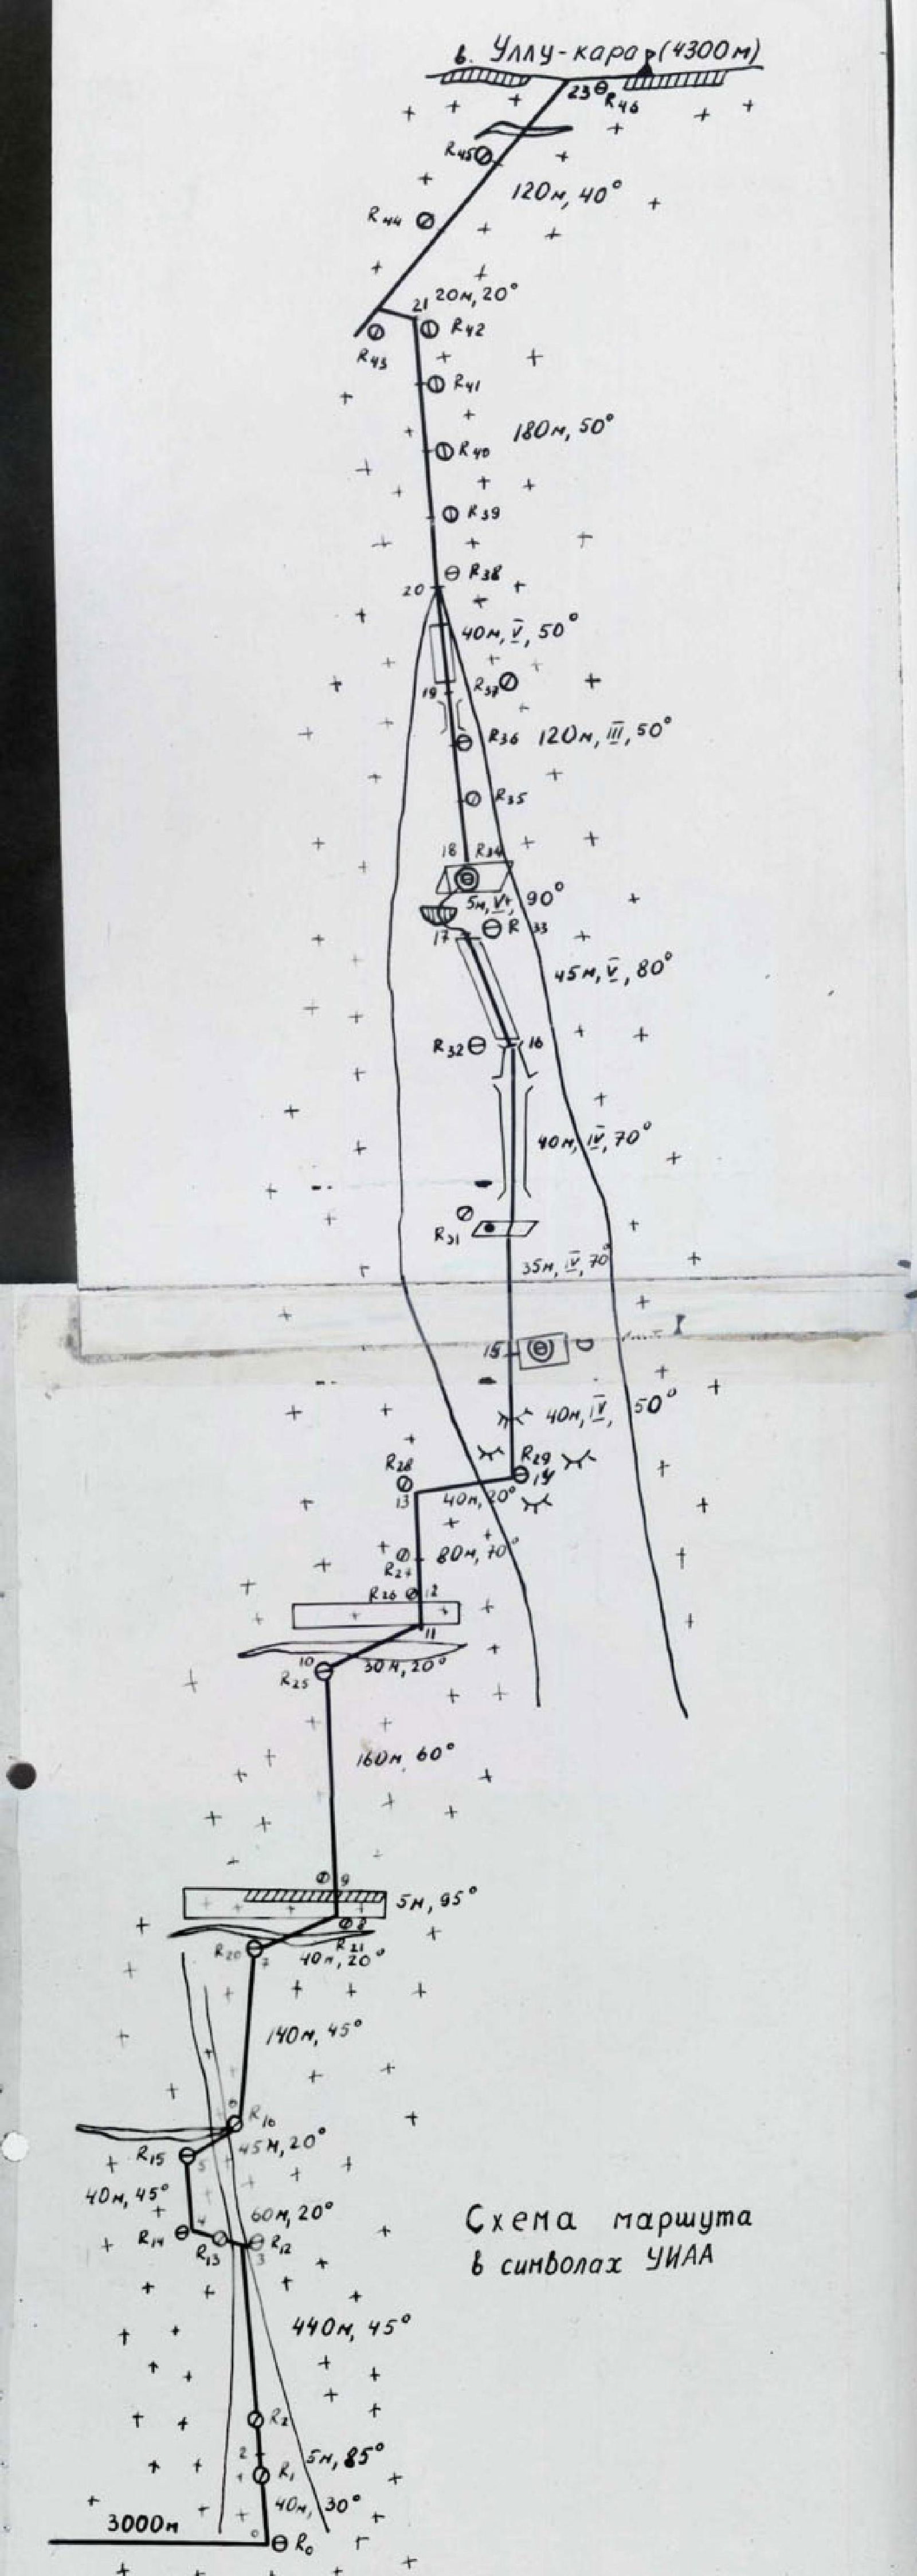 в. Уллу-кара (4300м)
23 R46
R45
120м, 40°
R44
21 20м, 20°
R42
R43
R41
180м, 50°
R40
R39
R38
20
40м, V, 50°
R37
19
R36 120м, III, 50°
R35
18 R34
5м, V+, 90°
R33
17
45м, V, 80°
R32 16
40м, IV, 70°
R31
35м, IV, 70°
15
40м, IV, 50°
R29
R28
14
13 40м, 20°
80м, 70°
R27
R26 12
11
10 30м, 20°
R25
160м, 60°
9
5м, 95°
8
R20 R21
7 40м, 20°
140м, 45°
6 R16
45м, 20°
R15 5
40м, 45°
60м, 20°
4
R14 R13 R12
3
Схема маршута
в символах УИАА
440м, 45°
R2
2 5м, 85°
1 R1
40м, 30°
3000м
0 R0